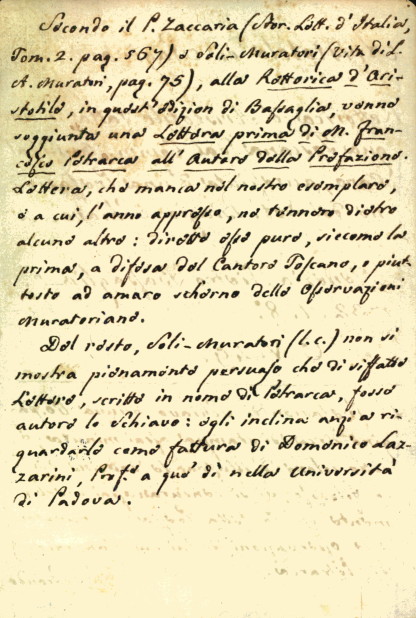 Secondo il P. Zaccaria (Stor. Lett. d'Italia,
Tom. 2. pag. 567) e Soli-Muratori (Vita di L.
A. Muratori, pag. 75), alla Rettorica d'Ari-
stotile, in quest'edizion di Bassaglia, venne
soggiunta una Lettera prima di M. Fran-
cesco Petrarca all'Autore della Prefazione.
Lettera, che manca nel nostro esemplare,
e a cui, l'anno appresso, ne tennero dietro
alcune altre: dirette esse pure, siccome la
prima, a difesa del Cantore Toscano, e piut-
tosto ad amaro scherno delle Osservazioni
Muratoriane.
Del resto, Soli-Muratori (l. c.) non si
mostra pienamente persuaso che di siffatte
Lettere, scritte in nome di Petrarca, fosse
autore lo Schiavo: egli inclina anzi a ri-
guardarle come fattura di Domenico Laz-
zarini, Prof.e a que' dì nella Università
di Padova.